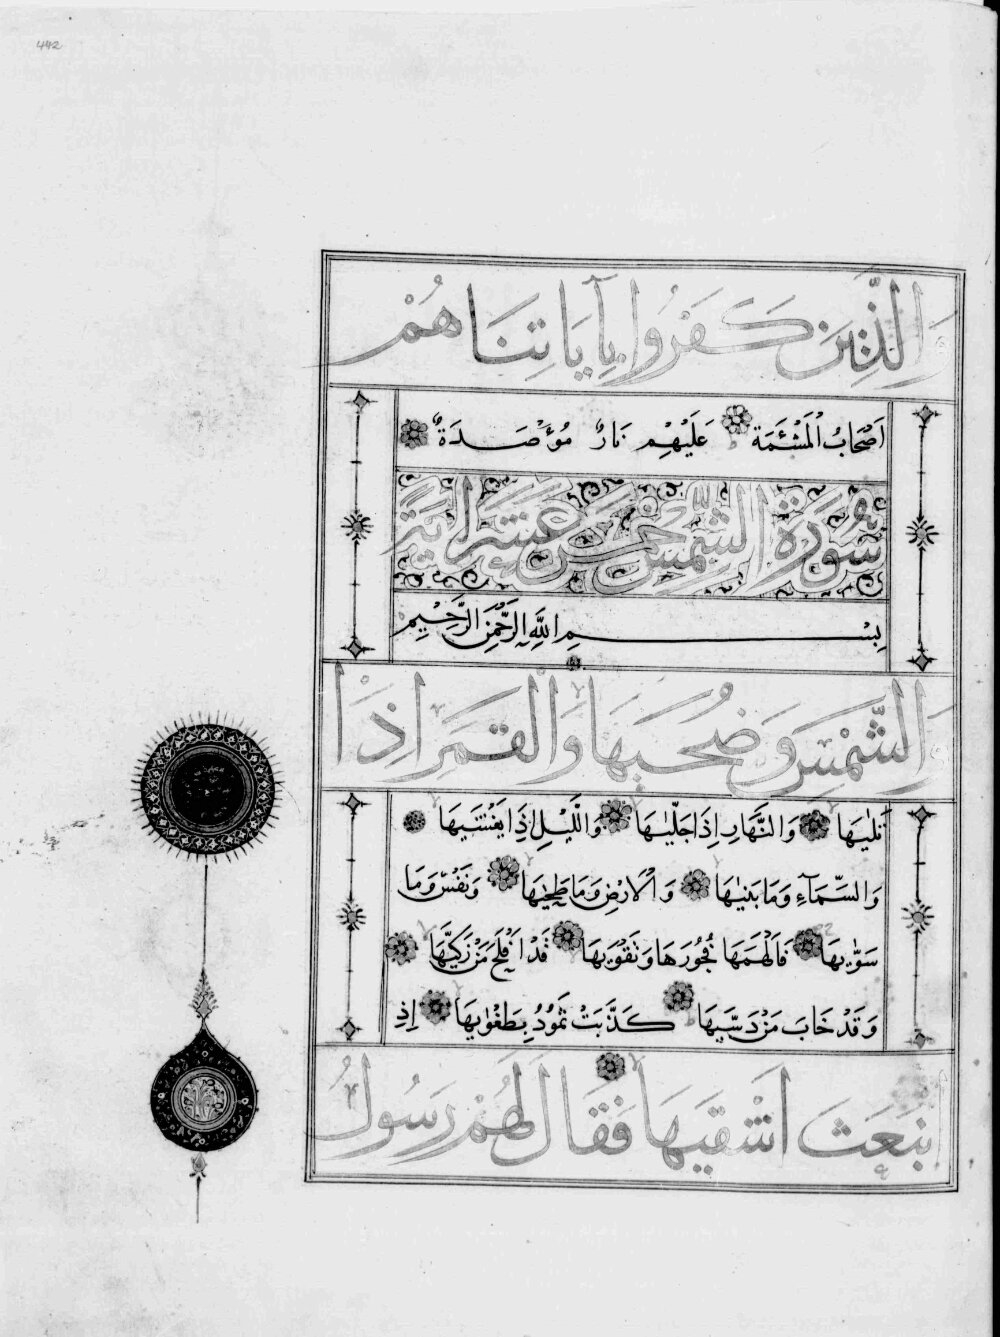 442
وَالَّذِينَ كَفَرُوا بِآيَاتِنَا هُمْ
اَصْحَابُ الْمَشْئَمَةِ عَلَيْهِمْ نَارٌ مُؤْصَدَةٌ
سُورَةُ الشَّمْسِ خمس عشر اية
بِسْمِ اللَّهِ الرَّحْمٰنِ الرَّحِيمِ
وَالشَّمْسِ وَضُحٰيهَا وَالْقَمَرِ اِذَا
تَلٰيهَا وَالنَّهَارِ اِذَا جَلّٰيهَا وَاللَّيْلِ اِذَا يَغْشٰيهَا
وَالسَّمَآءِ وَمَا بَنٰيهَا وَالْاَرْضِ وَمَا طَحٰيهَا وَنَفْسٍ وَمَا
سَوّٰيهَا فَاَلْهَمَهَا فُجُورَهَا وَتَقْوٰيهَا قَدْ اَفْلَحَ مَنْ زَكّٰيهَا
وَقَدْ خَابَ مَنْ دَسّٰيهَا كَذَّبَتْ ثَمُودُ بِطَغْوٰيهَا اِذِ
انْبَعَثَ اَشْقٰيهَا فَقَالَ لَهُمْ رَسُولُ